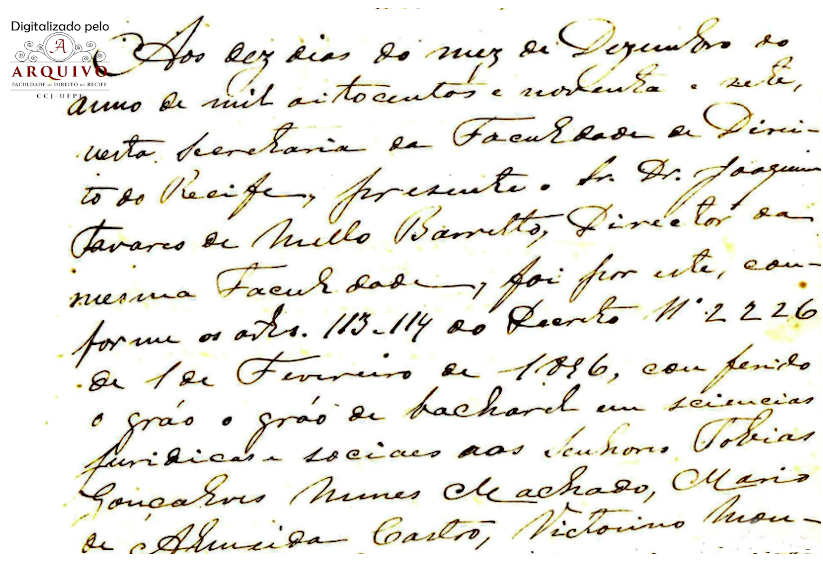 Digitalizado pelo
A
ARQUIVO
FACULDADE DE DIREITO DO RECIFE
CCJ-UFPE
Aos dez dias do mez de Dezembro do
anno de mil oitocentos e noventa e sete,
nesta Secretaria da Faculdade de Direi-
to do Recife, presente o Sr. Dr. Joaquim
Tavares de Mello Barretto, Director da
mesma Faculdade, foi por este, con-
forme os arts. 113-114 do Decreto Nº 2226
de 1 de Fevereiro de 1896, conferido
o gráo o gráo de bacharel em sciencias
juridicas e sociaes aos Senhores Tobias
Gonçalves Nunes Machado, Mario
de Almeida Castro, Victorino Mon-